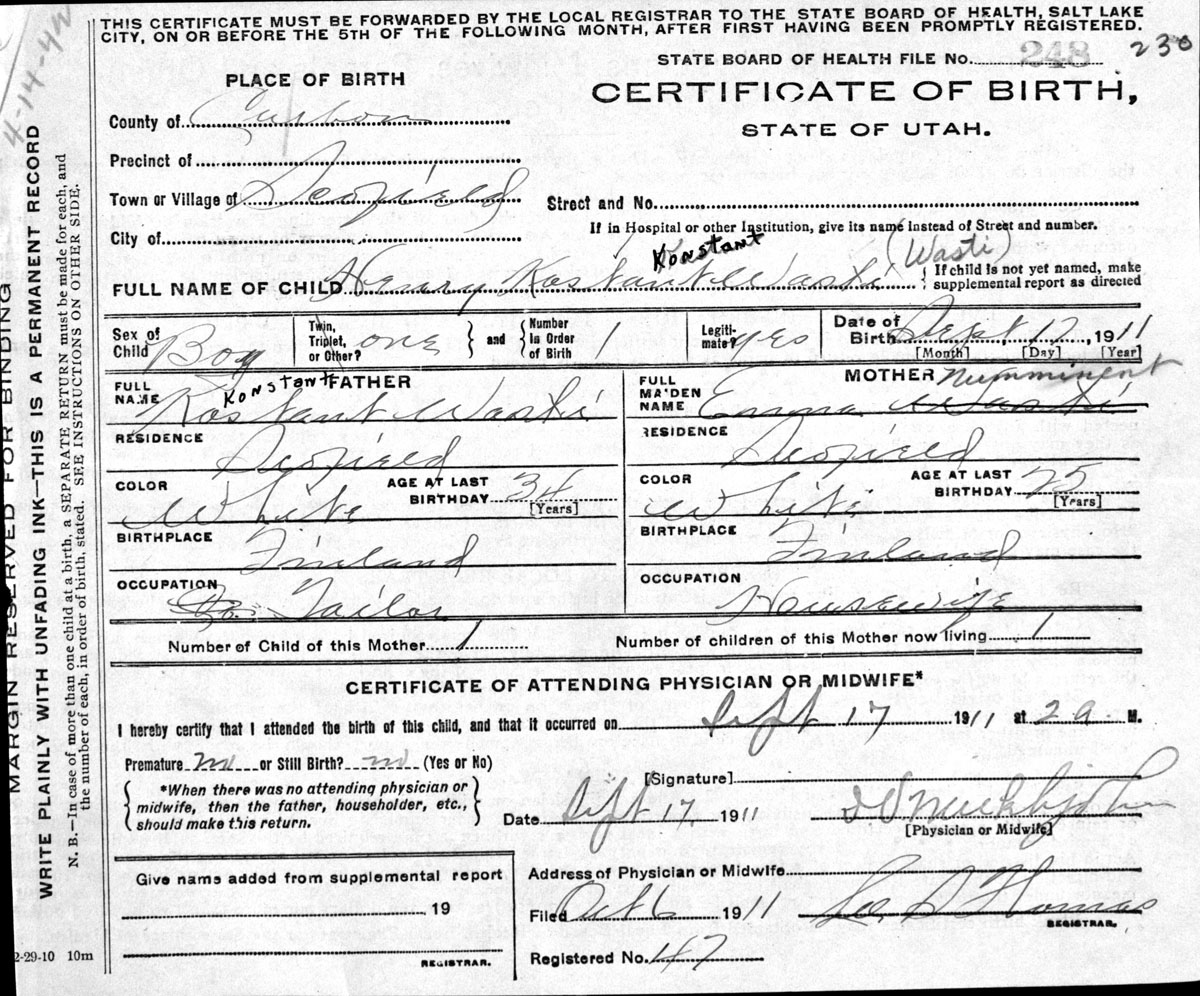 THIS CERTIFICATE MUST BE FORWARDED BY THE LOCAL REGISTRAR TO THE STATE BOARD OF HEALTH, SALT LAKE
CITY, ON OR BEFORE THE 5TH OF THE FOLLOWING MONTH, AFTER FIRST HAVING BEEN PROMPTLY REGISTERED.
4-14-42
MARGIN RESERVED FOR BINDING
WRITE PLAINLY WITH UNFADING INK—THIS IS A PERMANENT RECORD
N. B.—In case of more than one child at a birth, a SEPARATE RETURN must be made for each, and
the number of each, in order of birth, stated. SEE INSTRUCTIONS ON OTHER SIDE.
STATE BOARD OF HEALTH FILE No. 248 230
PLACE OF BIRTH
CERTIFICATE OF BIRTH,
STATE OF UTAH.
County of Carbon
Precinct of
Town or Village of Scofield
Street and No.
City of
If in Hospital or other Institution, give its name instead of Street and number.
Konstant (Wasti)
FULL NAME OF CHILD Henry Kostant Wasti { If child is not yet named, make
supplemental report as directed
Sex of Child Boy
Twin, Triplet, or Other? one } and { Number in Order of Birth 1
Legitimate? yes
Date of Birth Sept. 17, 1911
[Month] [Day] [Year]
FATHER
MOTHER Numminent
Konstant
FULL NAME Kostant Wasti
FULL MAIDEN NAME Emma Wasti
RESIDENCE Scofield
RESIDENCE Scofield
COLOR White AGE AT LAST BIRTHDAY 34 [Years]
COLOR White AGE AT LAST BIRTHDAY 25 [Years]
BIRTHPLACE Finland
BIRTHPLACE Finland
OCCUPATION Tailor
OCCUPATION Housewife
Number of Child of this Mother 1
Number of children of this Mother now living 1
CERTIFICATE OF ATTENDING PHYSICIAN OR MIDWIFE*
I hereby certify that I attended the birth of this child, and that it occurred on Sept 17 1911 at 2 a. M.
Premature no or Still Birth? no (Yes or No)
{ *When there was no attending physician or
midwife, then the father, householder, etc.,
should make this return. }
[Signature]
Date Sept 17 1911
[Physician or Midwife]
Give name added from supplemental report
19
REGISTRAR.
Address of Physician or Midwife
Filed Oct 6 1911 Thomas
REGISTRAR.
Registered No. 47
2-29-10 10m